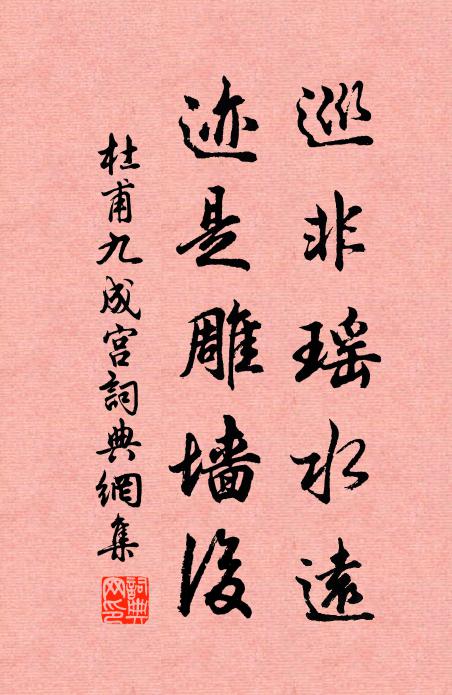 巡非瑶水遠
迹是雕墙後
杜甫九成宫詞典網集
詞典网印